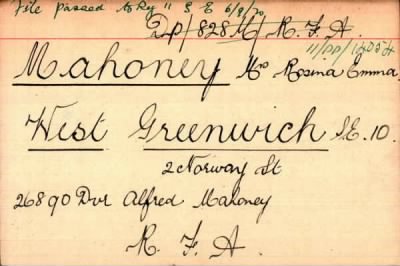 File passed to Ry 11 & E 6/8/20
Dp/828M/ R. F. A.
11/DP/14054
Mahoney Mrs Rosina Emma.
West Greenwich S.E. 10.
2 Norway St
26890 Dvr Alfred Mahoney
R. F. A.